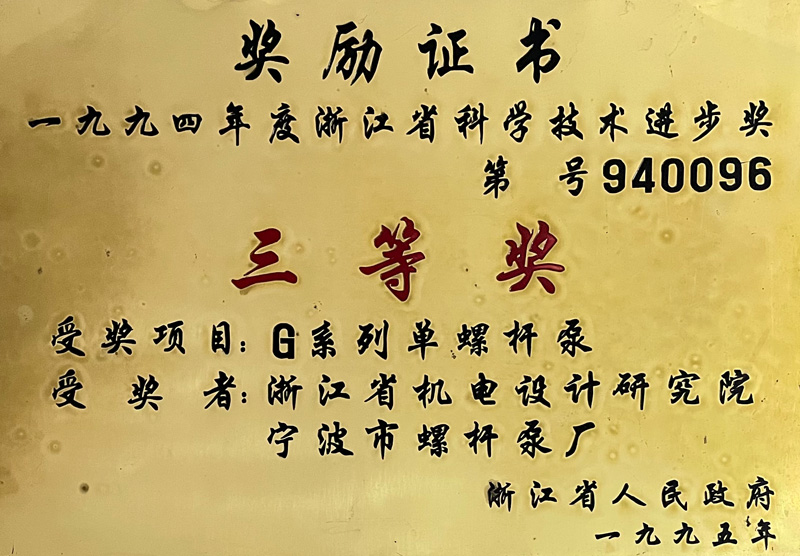 奖励证书
一九九四年度浙江省科学技术进步奖
第 号940096
三等奖
受奖项目：G系列单螺杆泵
受奖者：浙江省机电设计研究院
宁波市螺杆泵厂
浙江省人民政府
一九九五年